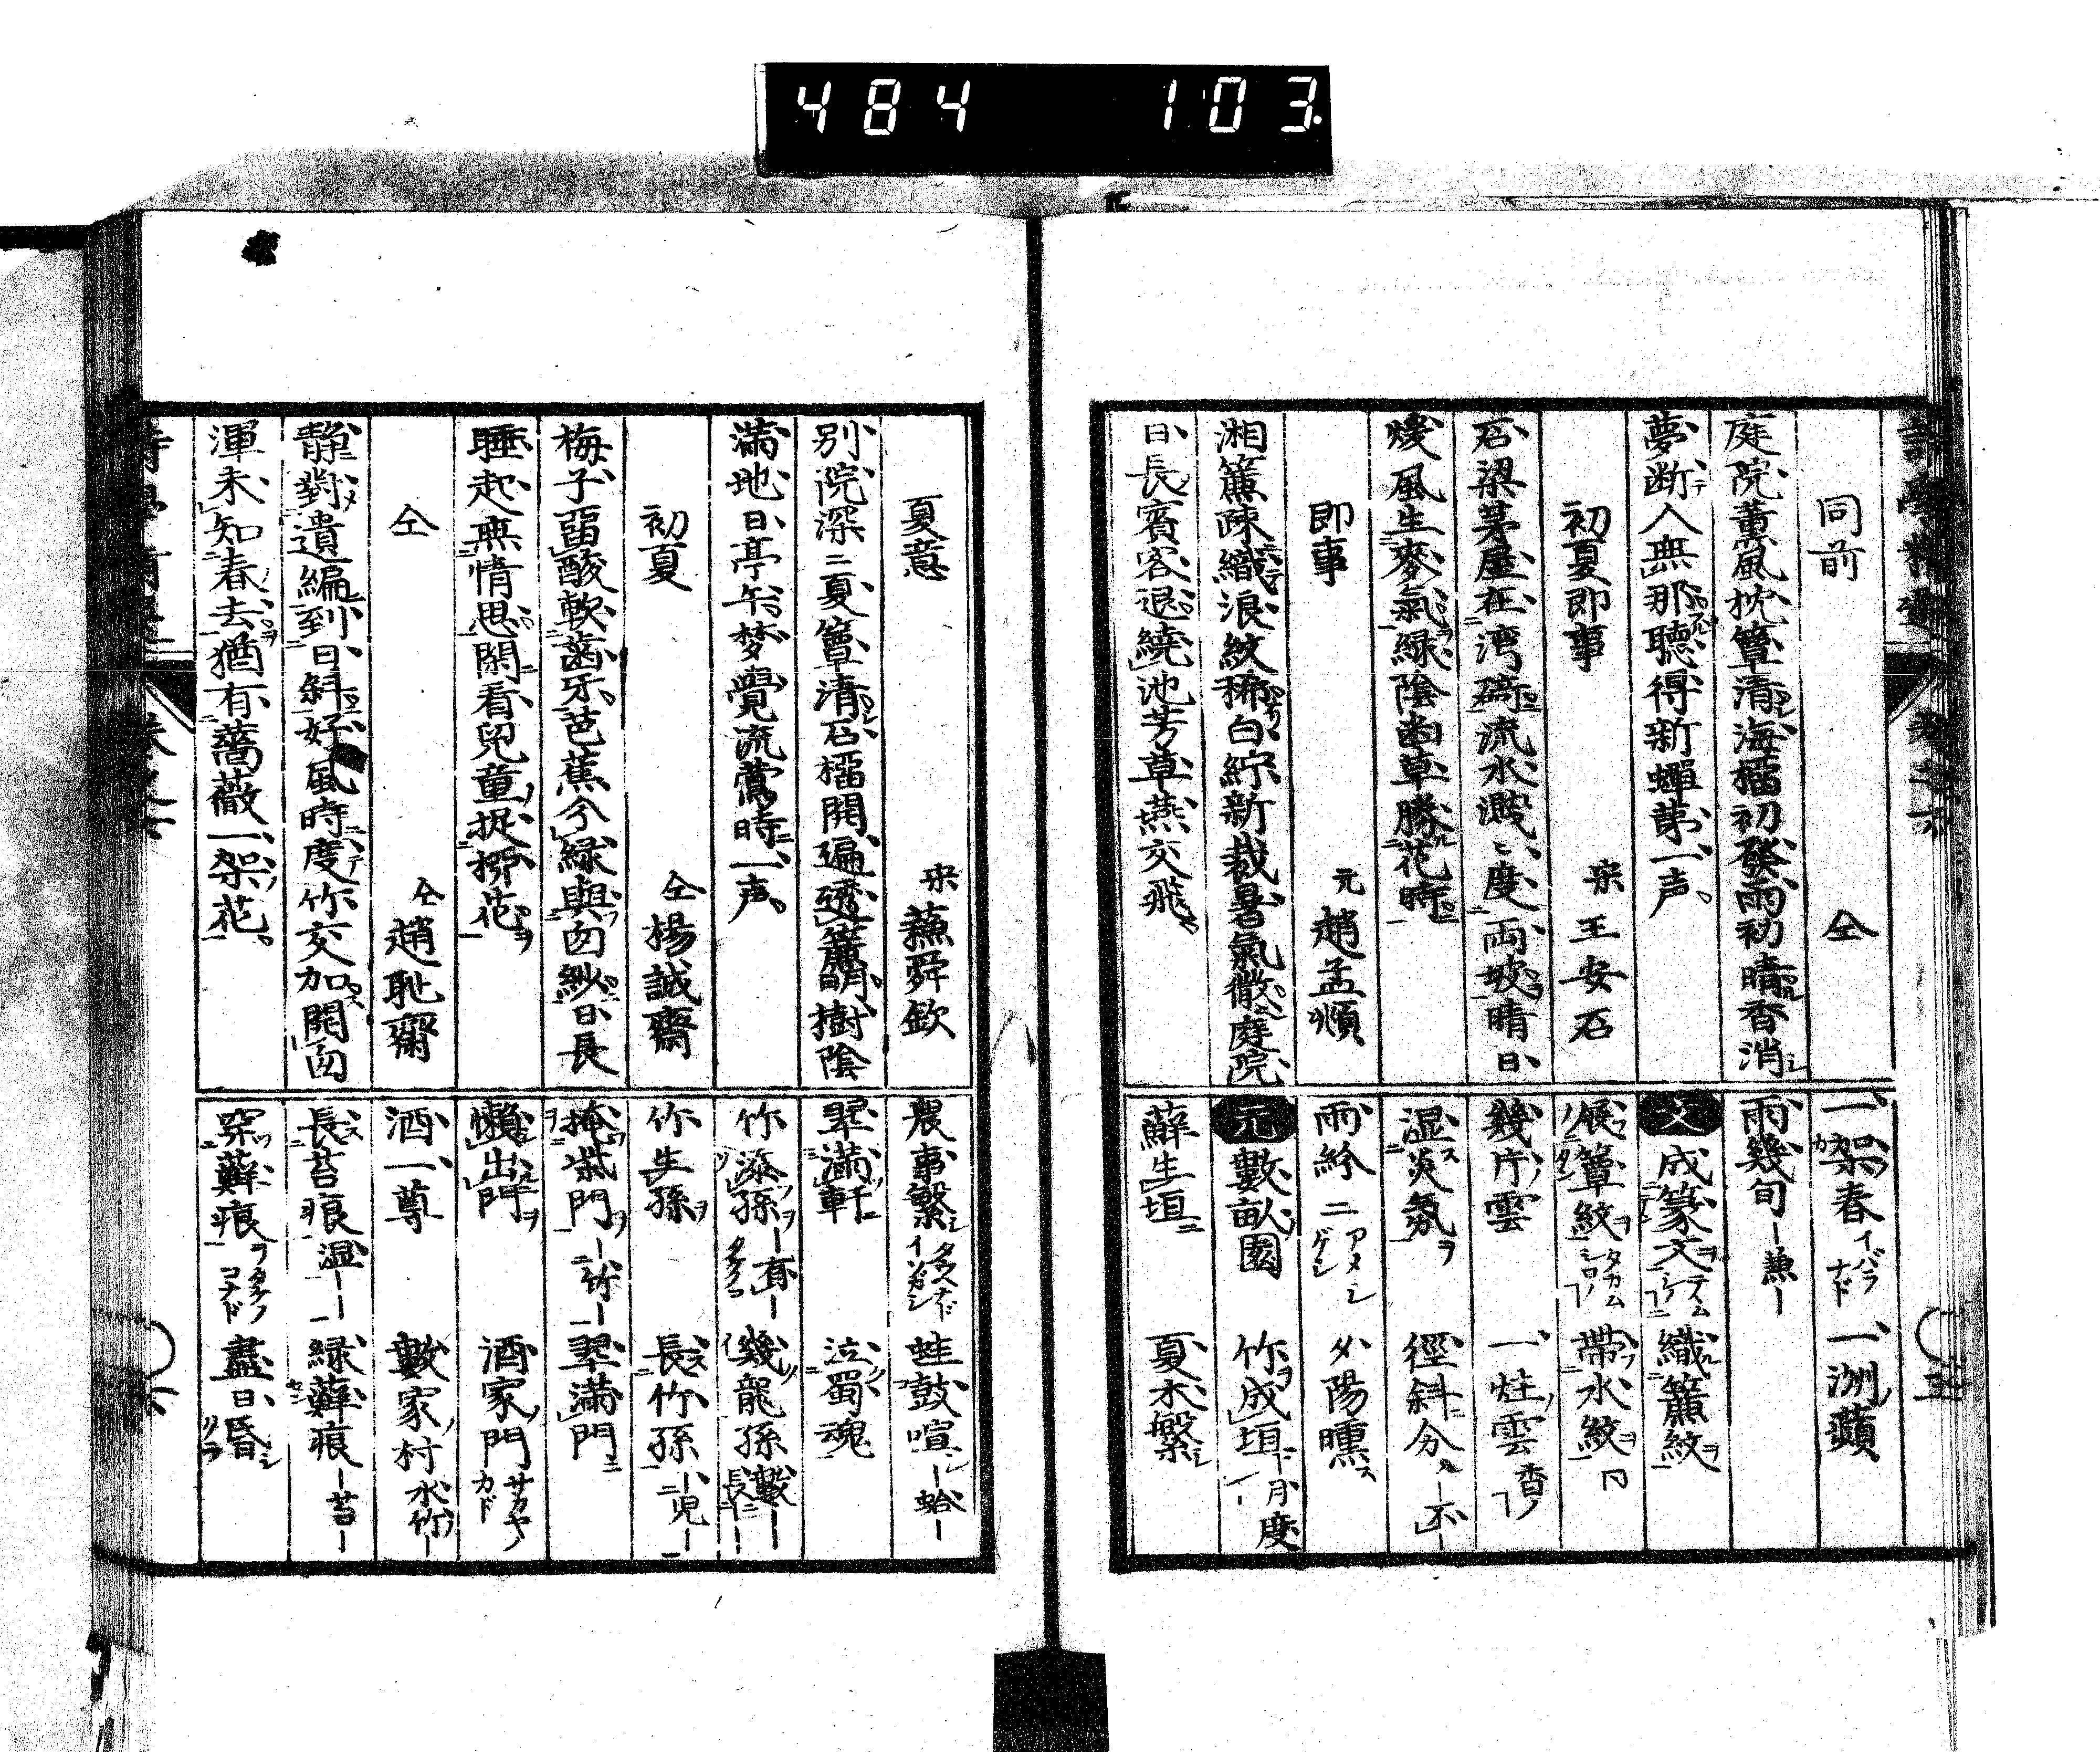 484 103.
同前 仝
庭院薫風枕簟清海榴初發雨初晴香消
夢断人無那聴得新蟬第一声
初夏即事 宋 王安石
石梁茅屋在湾碕流水濺〻度両坡晴日
煖風生麥氣緑陰幽草勝花時
即事 元 趙孟頫
湘簾疎織浪紋稀白紵新裁暑氣微庭院
日長賓客退繞池芳草燕交飛
一架春 イバラナド 一洲蘋
雨幾旬
文 成篆文 織簾紋
展簟紋 帯水紋
幾片雲 一炷雲 香
湿炎氛 徑斜分 不
雨紛〻 夕陽曛
元 數畝園 竹成垣
蘚生垣 夏木繁
夏意 宋 蘇舜欽
別院深〻夏簟清石榴開遍透簾明樹陰
滿地日亭午梦覺流鶯時一声
初夏 仝 楊誠齋
梅子畱酸軟齒牙芭蕉今緑與囱紗日長
睡起無情思閑看兒童捉柳花
仝 仝 趙恥齋
静對遺編到日斜好風時度竹交加開囱
渾未知春去猶有薔薇一架花
農事繁 蛙鼓喧
翠滿軒 泣蜀魂
竹添孫 有 幾龍孫
竹生孫 長竹孫 児
掩柴門 竹 翠滿門
懶出門 酒家門 サカヤノカド
酒一尊 數家村 水竹
長苔痕 湿 緑蘚痕 苔
穿蘚痕 盡日昏